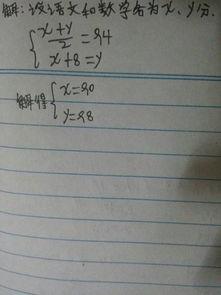 解：设语文和数学各为x、y分.
{ (x+y)/2 = 94
x+8=y
解得 { x=90
y=98